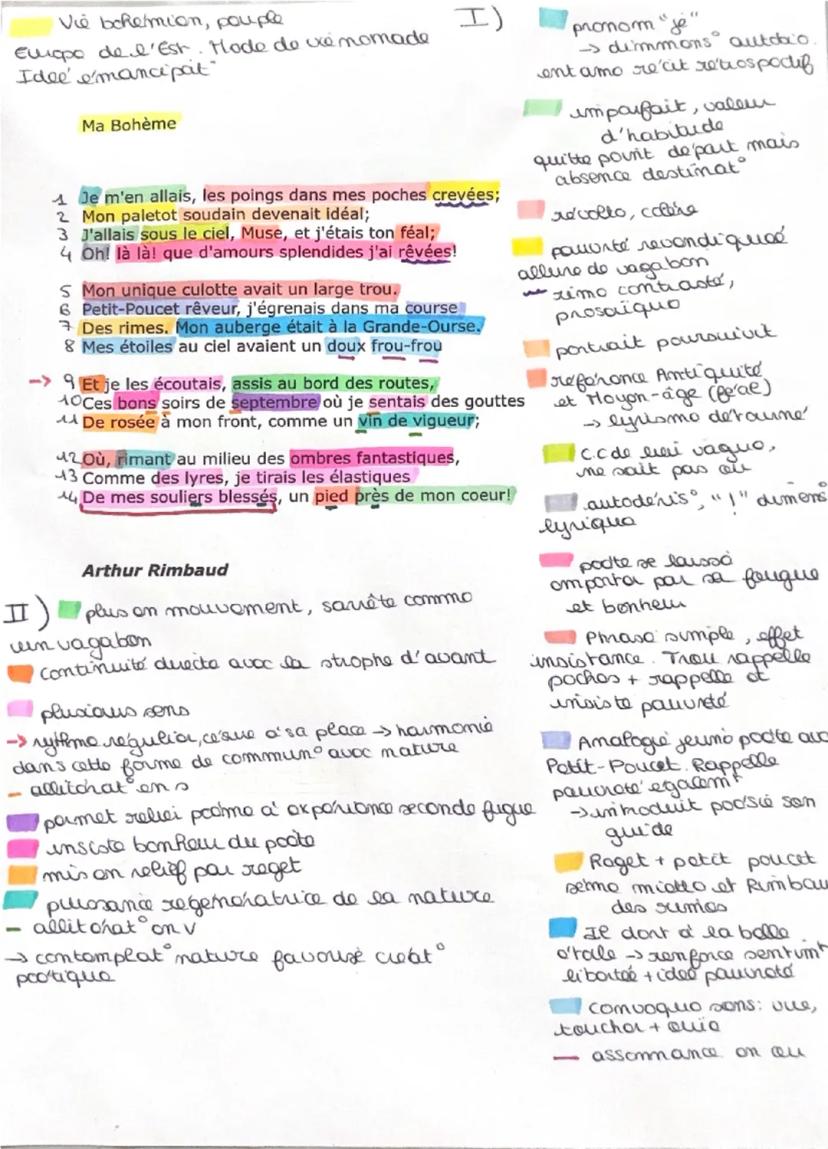 Vie bohémien, peuple
Europe de l'Est. Mode de vie nomade
Idée émancipat°
Ma Bohème
1 Je m'en allais, les poings dans mes poches crevées;
2 Mon paletot soudain devenait idéal;
3 J'allais sous le ciel, Muse, et j'étais ton féal;
4 Oh! là là! que d'amours splendides j'ai rêvées!
5 Mon unique culotte avait un large trou.
6 Petit-Poucet rêveur, j'égrenais dans ma course
7 Des rimes. Mon auberge était à la Grande-Ourse.
8 Mes étoiles au ciel avaient un doux frou-frou
→ 9 Et je les écoutais, assis au bord des routes,
10 Ces bons soirs de septembre où je sentais des gouttes
11 De rosée à mon front, comme un vin de vigueur;
12 Où, rimant au milieu des ombres fantastiques,
13 Comme des lyres, je tirais les élastiques
14 De mes souliers blessés, un pied près de mon coeur!
Arthur Rimbaud
I)
pronom "je"
→ dimmens° autobio.
entame récit rétrospectif
imparfait, valeur
d'habitude
quitte point départ mais
absence destinat°
révolte, colère
pauvreté revendiquée
allure de vagabon
rime contrasté,
prosaïque
portrait poursuivit
référence Antiquité
et Moyen-âge (féal)
→ lyrisme détourné
C.C de lieu vague,
ne sait pas où
autodéris°, "!" dimens°
lyrique
poète se laisse
emporter par sa fougue
et bonheur
Phrase simple, effet
insistance. Trou rappelle
poches + rappelle et
insiste pauvreté
Analogie jeune poète avec
Petit-Poucet. Rappelle
pauvreté égalemt
→ introduit poésie son
guide
Rejet + petit poucet
sème miette et Rimbau
des rimes
Il dort à la belle
étoile → renforce sentimt
liberté + idée pauvreté
Convoque sens: vue,
toucher + ouïe
assonnance en ou
II) plus en mouvement, s'arrête comme
un vagabon
continuité directe avec la strophe d'avant
plusieurs sens
→ rythme régulier, césure à sa place → harmonie
dans cette forme de commun° avec nature
allitérat° en s
permet relier poème à expérience seconde fugue
insiste bonheur du poète
mis en relief par rejet
puissance régénératrice de la nature
allitérat° en v
→ contemplat° nature favorise créat°
poétique